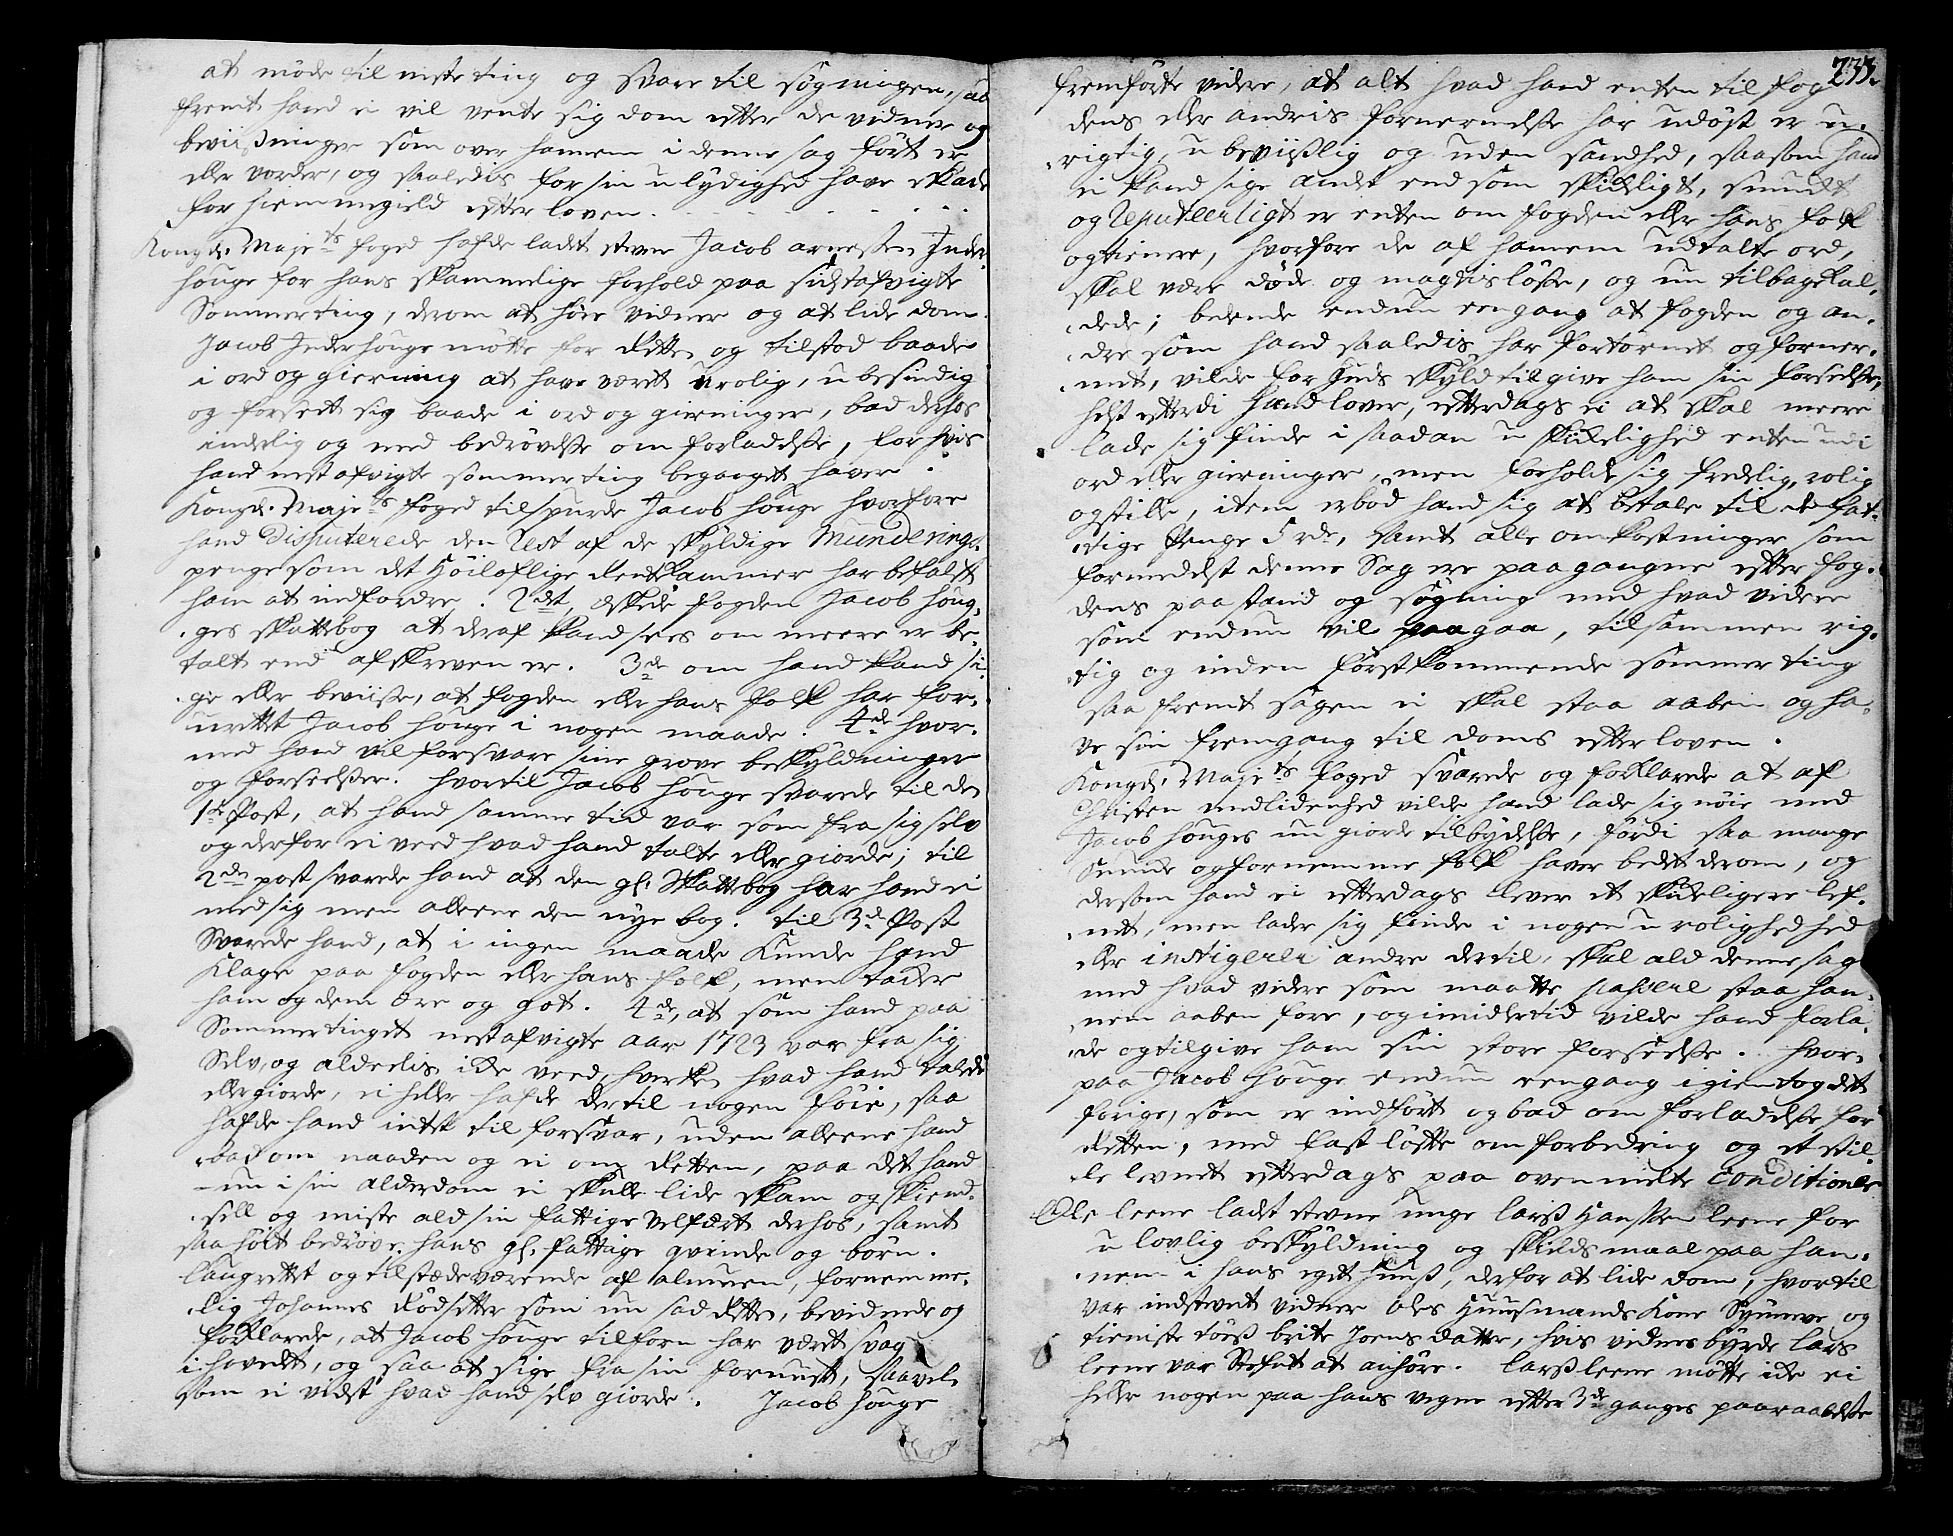 at møde til neste ting og svare til søgningen, saa
fremt hand ei vil vente sig dom efter de vidner og
beviißninger som over hannem i denne sag ført er
eller vorder, og saaledis for sin ulydighed have skade
for hiemmgield efter loven.
Kongl. Majets foged hafde ladet stevne Jacob arnessen Inder-
houge for hans skammelige forhold paa sidstafvigte
Sommerting, derom at høre vidner og at lide dom.
Jacob Inderhouge møtte for Retten og tilstod baade
i ord og gierning at have været urolig, ubesindig
og forseet sig baade i ord og gierninger, bad derhos
inderlig og med bedrøvelse om forladelse, for hvis
hand nestafvigte sommerting begaaget haver.
Kongl. Majets foged tilspurde Jacob houge hvorfore
hand Disputerede den Rest af de skyldige Munderings-
penge som det Høiloflige Rentekammer har befalet
ham at indfordre. 2det, æskede fogden Jacob houg-
ges skattebog at deraf kand sees om meere er be-
talt end afskreven er. 3de om hand kand si-
ge eller beviise, at fogden eller hans folk har for-
urettet Jacob houge i nogen maade. 4de hvor-
med hand vil forsvare sine grove beskyldninger
og forseelser. hvortil Jacob houge svarede til den
1te Post, at hand samme tid var som fra sig selv
og derfor ei veed hvad hand talte eller giorde; til
2den post svarede hand at den gl. Skattebog har hand ei
med sig men alleene den nye bog. til 3de Post
Svarede hand, at i ingen maade kunde hand
Klage paa fogden eller hans folk, men takker
ham og dem ære og got. 4de, at som hand paa
Sommertinget nestafvigte aar 1723 var fra sig
Selv, og aldeelis icke veed, hverken hvad hand talede
eller giorde, ei heller hafde dertil nogen føie, saa
hafde hand intet til forsvar, uden alleene hand
bad om naaden og ei om Retten, paa det hand
nu i sin alderdom ei skulle lide skam og skiend-
sell og miste ald sin fattige velfært derhos, samt
saa høit bedrøve hans gl. fattige qvinde og børn.
laugrettet og tilstædeværende af almuen, fornemme-
lig Johannes Rødsetter som nu sad Retten, bevidnede og
forklarede, at Jacob houge tilforn har været svag
i hovedet, og saa at sige fra sin fornuft, saavel
som ei vidst hvad hand selv giorde. Jacob houge
233.
fremførte videre, at alt hvad hand enten til fog-
dens eller andris fornermelse har udøst er u-
rigtig, ubeviißlig og uden sandhed, saasom hand
ei kand sige andet end som skickeligt, smuckt
og Reputeerligt er enten om fogden eller hans folk
og tienere, hvorfore de af hannem udtalte ord,
skal være døde og magtisløße, og nu tilbagekal-
dede; bedende endnu eengang at fogden og an-
dre som hand saaledis har fortørnet og forner-
met, vilde for Guds skyld tilgive ham sin forseelse,
helst efterdi hand lover, efterdags ei at skal meere
lade sig finde i saadan uskickelighed enten udi
ord eller gierninger, men forholde sig fredelig, rolig
og stille, item erbød hand sig at betale til de fat-
tige Penge 5 rdr, samt alle omkostninger som
formedelst denne Sag ere paagangne efter fog-
dens paastand og søgning med hvad videre
som endnu vil paagaa, tilsammen rig-
tig og inden førstkommende sommerting
saa fremt sagen ei skal staa aaben og ha-
ve sin fremgang til doms efter loven.
Kongl. Majets foged svarede og forklarede at af
Christen medlidenhed vilde hand lade sig nøie med
Jacob houges nu giorde tilbydelse, fordi saa mange
Smucke og fornemme folk haver bedet derom, og
dersom hand ei efterdags lever et skickeligere lef-
net, men lader sig finde i nogen urolighedhed
eller instigerer andre dertil, skal ald denne sag
med hvad videre som maatte passere staa han-
nem aaben fore, og imidlertid vilde hand forla-
de og tilgive ham sin store forseelse. hvor-
paa Jacob houge endnu eengang igientog det
forige, som er indført og bad om forladelse for
Retten, med fast løfte om forbedring og et stil-
le levnet efterdags paa ovenmelte Conditioner
Ole leene ladet stevne unge larß Hanssen leene for
ulovlig beskyldning og skieldsmaal paa han-
nem i hans eget huuß, derfor at lide dom, hvortil
var indstevnt vidner Oles huusmands Kone Synneve og
tieniste tøß brite Joensdatter, hvis vidnesbyrde lars
leene var stefnt at anhøre. larß leene møtte icke ei
heller nogen paa hans vegne efter 3de ganges paaraabelse